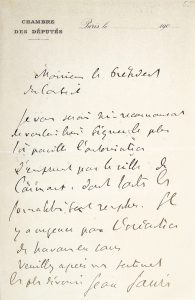 CHAMBRE
DES DÉPUTÉS
Paris, le 190
Monsieur le Président
du Conseil
Je vous serai reconnaissant
de vouloir bien signer le plus
tôt possible l'autorisation
d'emprunt par la ville de
dont toutes les
formalités sont remplies. Il
y a urgence pour l'exécution
de travaux en cours
Veuillez agréer mes sentiments
les plus dévoués Jean Jaurès